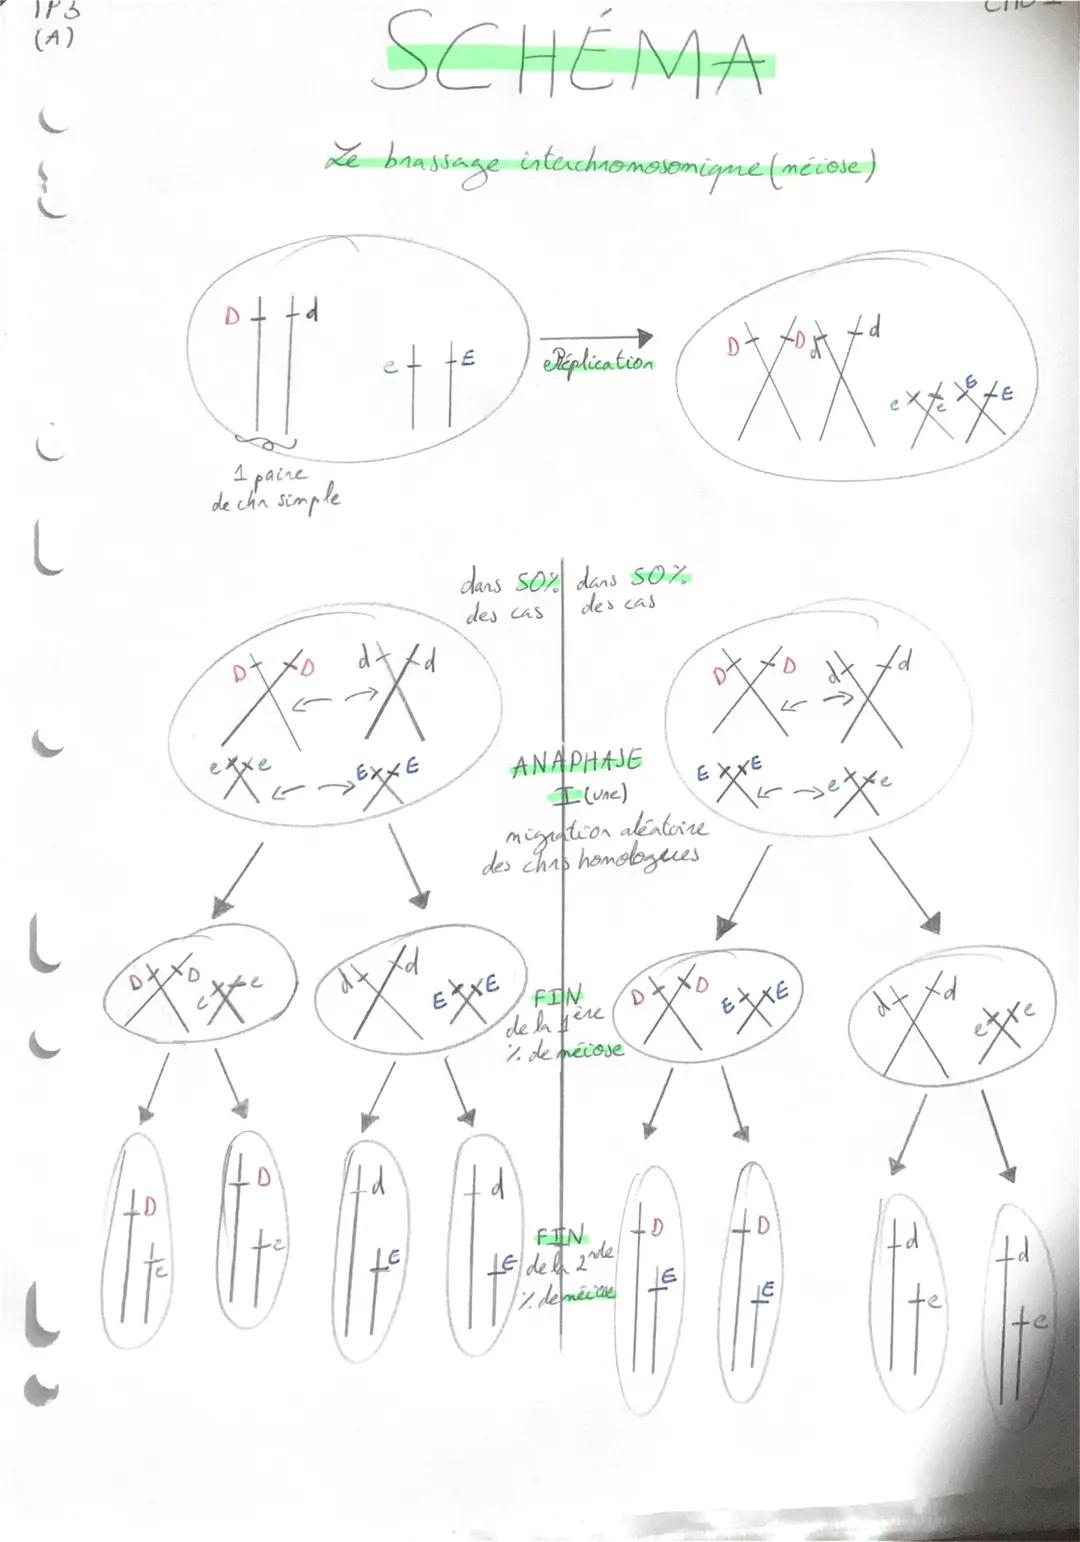 TP3
(A)
SCHÉMA
Le brassage interchromosomique (méiose)
D d
e E
Réplication
D D d d
e e E E
1 paire
de chr simple
dans 50% dans 50%
des cas des cas
D D d d
D D d d
e e E E
E E e e
ANAPHASE
I (une)
migration aléatoire
des chrs homologues
D D e e
d d E E
D D E E
d d e e
FIN
de la 1ère
% de méiose
D e
D e
d E
d E
FIN
de la 2nde
% de méiose
D E
D E
d e
d e